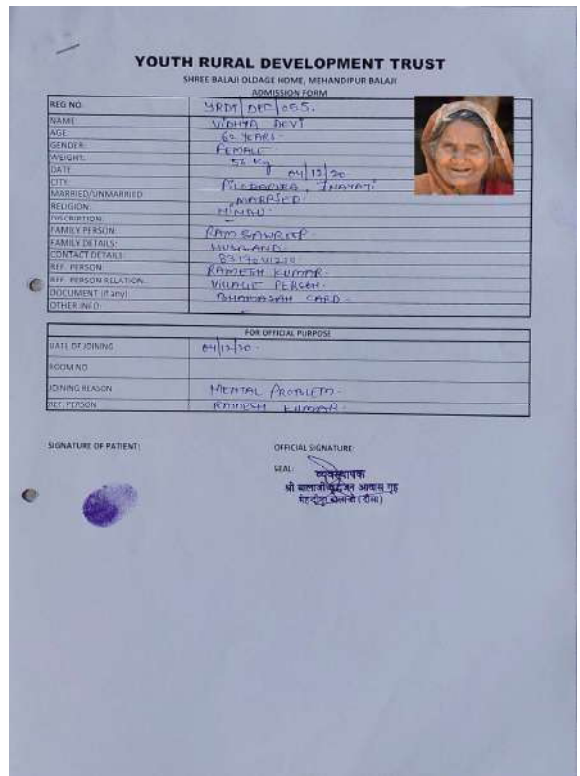 YOUTH RURAL DEVELOPMENT TRUST
SHREE BALAJI OLDAGE HOME, MEHANDIPUR BALAJI
ADMISSION FORM
REG NO. YRDT/DEC/055.
NAME VIDHYA DEVI
AGE 62 YEARS-
GENDER: FEMALE-
WEIGHT: 56 Kg
DATE 04/12/20
CITY:
MARRIED/UNMARRIED MARRIED.
RELIGION: HINDU.
DISCRIPTION:
FAMILY PERSON: RAM
FAMILY DETAILS: HUSBAND.
CONTACT DETAILS
REF. PERSON RAMESH KUMAR.
REF. PERSON RELATION: VILLAGE PERSON.
DOCUMENT (If any) BHAMASAH CARD.
OTHER INFO:
FOR OFFICIAL PURPOSE
DATE OF JOINING 04/12/20.
ROOM NO
JOINING REASON MENTAL PROBLEM-
REF. PERSON RAMESH KUMAR.
SIGNATURE OF PATIENT: OFFICIAL SIGNATURE:
SEAL: व्यवस्थापक
श्री बालाजी जन आवास गृह
(दौसा)